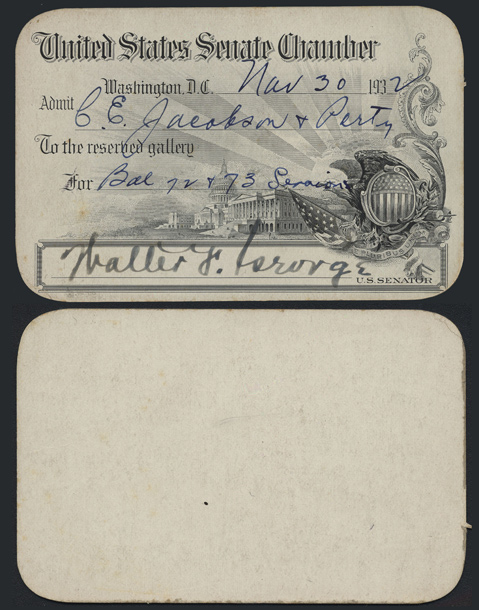 United States Senate Chamber
Washington, D.C. Nov 30 1932
Admit C. E. Jacobson & Party
To the reserved gallery
For Bal 72 & 73 Sessions
Walter F. George
U.S. SENATOR